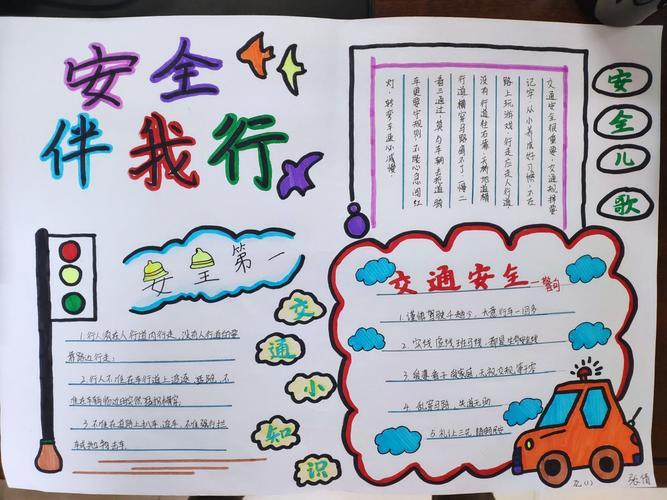 安全
伴我行
安全儿歌
交通安全很重要,交通规择要
记牢,从小养成好习惯,不在
路上玩游戏,行走应走人行道,
没有行道往右靠,天桥地道横
行道横穿马路离不了,一慢二
看三通过,莫与车辆去抢道骑
车更要守规则,不要心急闯红
灯,转弯车速心减慢。
安全第一
1.行人须在人行道内行走,没有人行道的要
靠路边行走;
2.行人不准在车行道上追逐、跑,不
准在车辆临近时突然猛拐横穿。
3.不准在道路上扒车、追车、不准强行拦
车或抛物击车。
交通小知识
交通安全—警句
1.谨慎驾驶千趟少,大意行车一回多
2.实线虚线斑马线,都是生命安全线
3.爱妻爱子爱家庭,无视交规等于零
4.乱穿马路,失道无助
5.礼让三先
九(1) 张倩